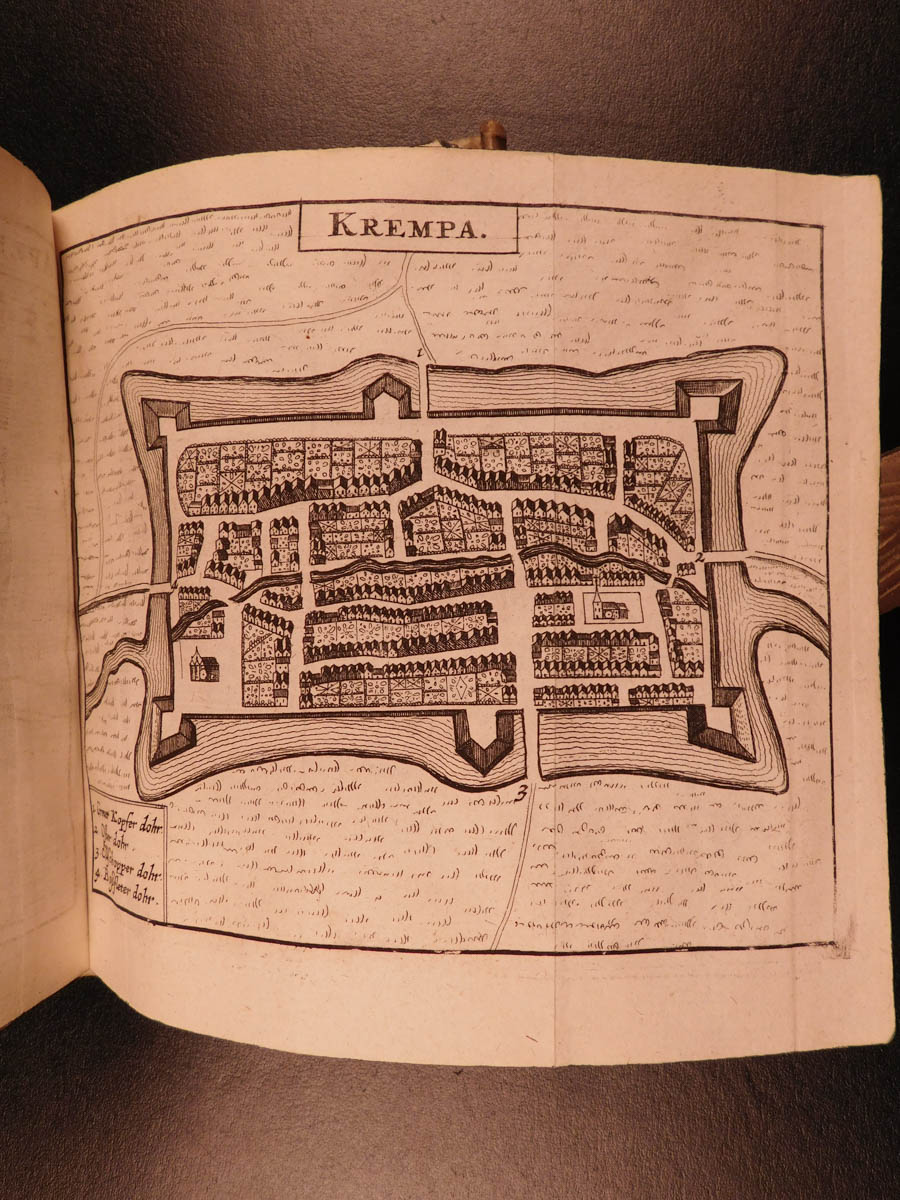 KREMPA.
1
2
4
3
Kopfer dohr.
2 dohr.
3 dohr.
4 dohr.